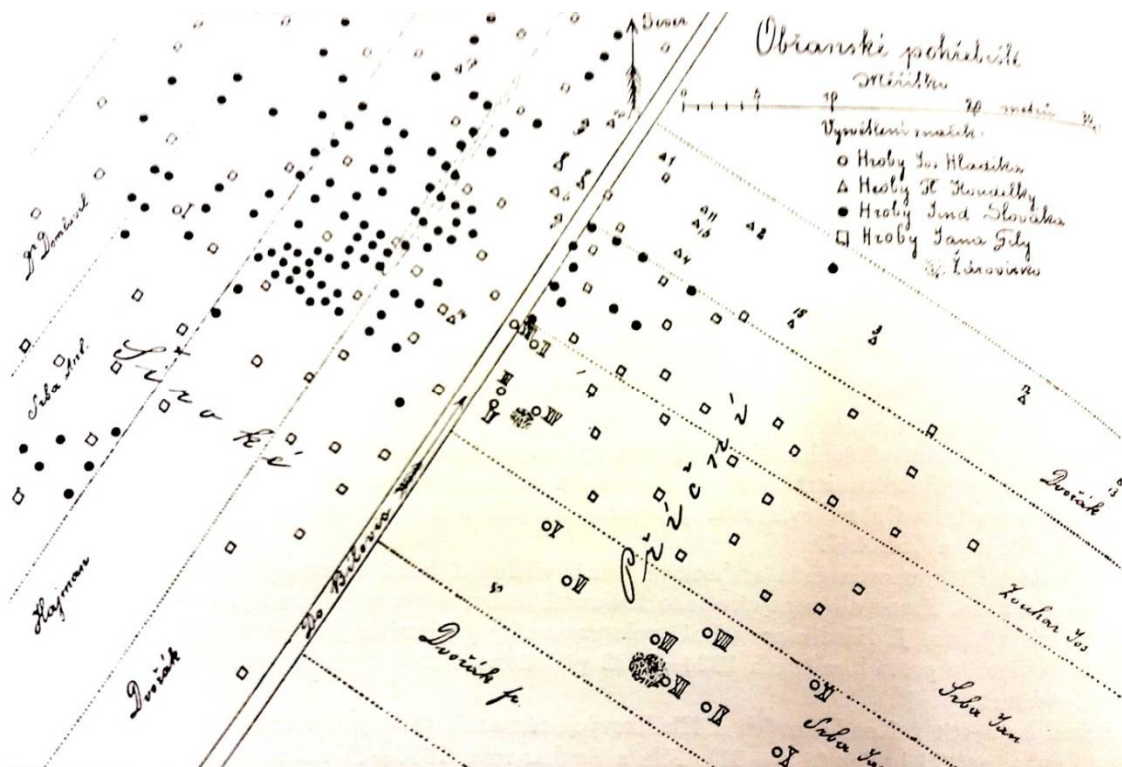 Sever
Obřanské pohřebiště
Měřítko
0
10
20
metrů
30
Vysvětlení značek:
Hroby Jos. Hladíka
Hroby Fl. Koudelky
Hroby Jind. Slováka
Hroby Jana Fily
Žároviska
Dr. Dombévil
Srba Ant.
Široké
Hajman
Dvořák
Do Bílovic
Příčné
Dvořák fr.
Dvořák
Zouhar Jos
Srba Jan
Srba Jan
1
11
2
4
15
3
12
13
I
II
III
IV
V
VI
VII
VIII
IX
X
XI